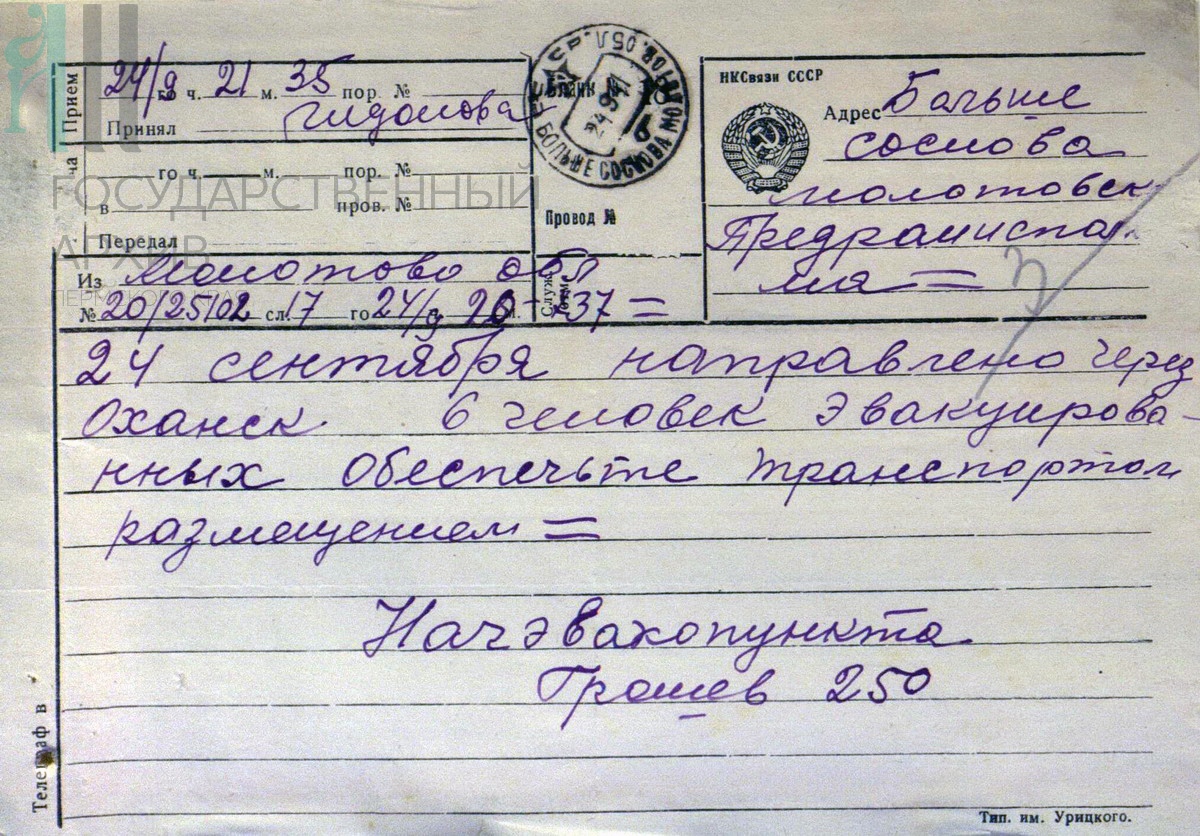 Прием
24/9 го ч. 21 м. 35 пор. №
Принял
го ч. м. пор. №
в пров. №
Передал
Из Молотово обл
№ 20/25102 сл. 17 го 24/9 20-37 =
Бланк
БОЛЬШЕ СОСНОВА МОЛОТОВ. ОБЛ.
24.9.41
Провод №
НКСвязи СССР
Адрес Больше
соснова
молотовск
Предрайиспол
ма =
24 сентября направлено через
Оханск 6 человек эвакуирова-
нных обеспечьте транспортом
размещением =
Начэвакопункта
Грошев 250
Телеграф в
Тип. им. Урицкого.
ГОСУДАРСТВЕННЫЙ
АРХИВ